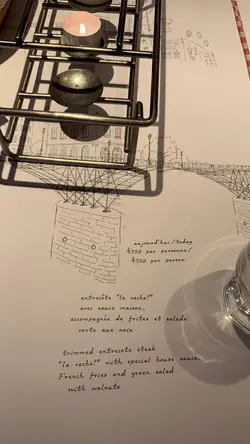 aujourd'hui/today
$350 per personne/
$350 per person
entrecôte "la vache!"
avec sauce maison,
accompagnée de frites et salade
verte aux noix
trimmed entrecote steak
"la vache!" with special house sauce,
French fries and green salad
with walnuts